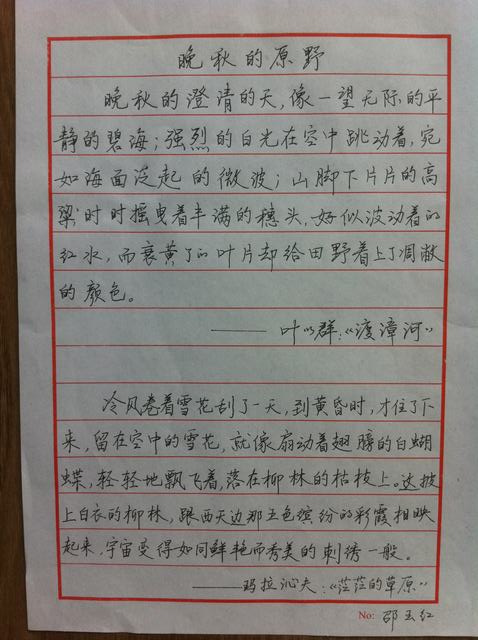 晚秋的原野
晚秋的澄清的天,像一望无际的平
静的碧海;强烈的白光在空中跳动着,宛
如海面泛起的微波;山脚下片片的高
粱时时摇曳着丰满的穗头,好似波动着的
红水,而衰黄了的叶片却给田野着上了凋敝
的颜色。
——叶以群:《渡漳河》
冷风卷着雪花刮了一天,到黄昏时,才住了下
来,留在空中的雪花,就像扇动着翅膀的白蝴
蝶,轻轻地飘飞着,落在柳林的枯枝上。这披
上白衣的柳林,跟西天边那五色缤纷的彩霞相映
起来,宇宙变得如同鲜艳而秀美的刺绣一般。
——玛拉沁夫:《茫茫的草原》
No: 邵玉红